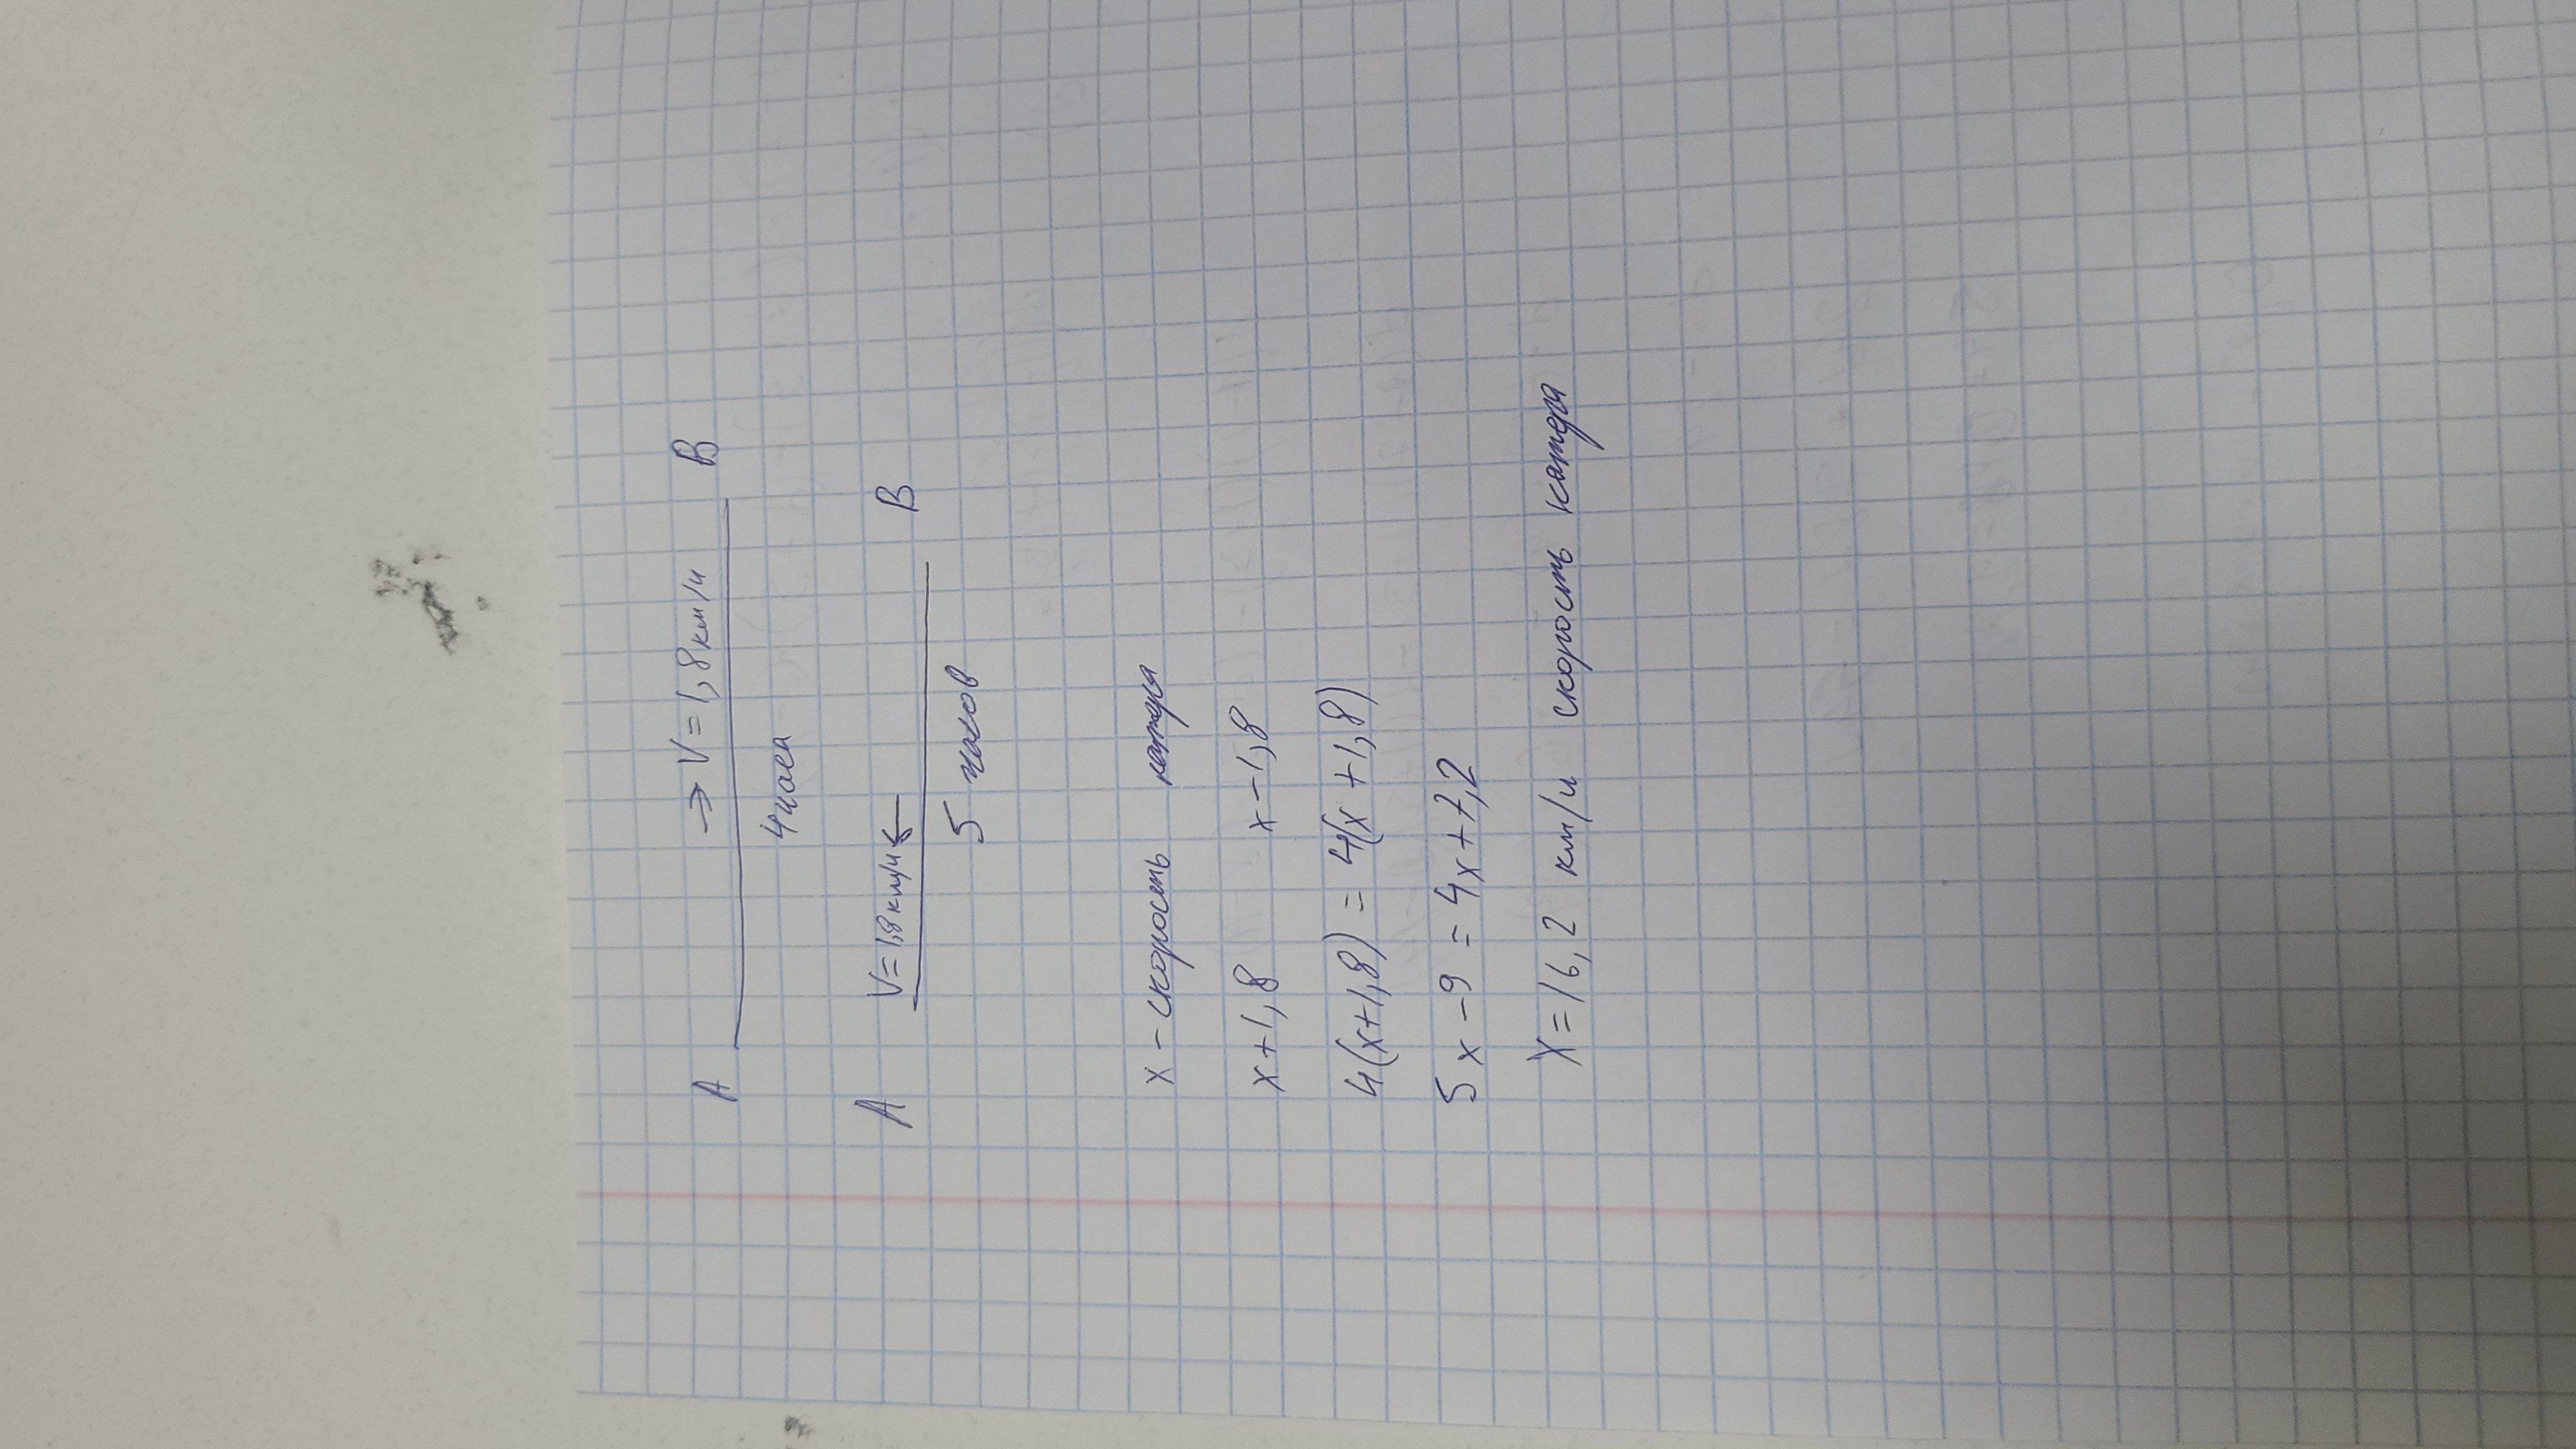 A → V = 1,8 км/ч B
4 часа
A V = 1,8 км/ч ← B
5 часов
x - скорость катера
x + 1,8 x - 1,8
4(x+1,8) = 4(x+1,8)
5x - 9 = 4x + 7,2
x = 16,2 км/ч скорость катера